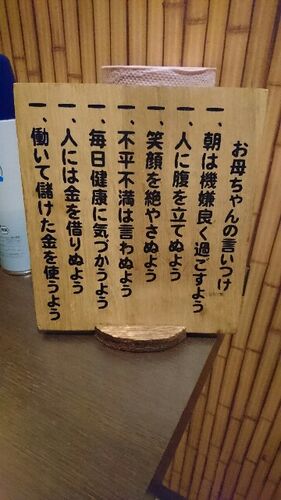 お母ちゃんの言いつけ
一、朝は機嫌良く過ごすよう
一、人に腹を立てぬよう
一、笑顔を絶やさぬよう
一、不平不満は言わぬよう
一、毎日健康に気づかうよう
一、人には金を借りぬよう
一、働いて儲けた金を使うよう